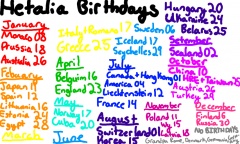 Hetalia Birthdays
January
Monaco 08
Prussia 18
Australia 26
Febuary
Japan 11
Spain 12
Lithuania 16
Estonia 24
Egypt 28
March
Italy/Romano 17
Greece 25
April
Belguim 16
England 23
May
Norway 17
Cuba 20
June
Sweden 06
Iceland 17
Seychelles 29
July
Canada + Hong Kong 01
America 04
Liechtenstein 12
France 14
August
Switzerland 01
Korea 15
Hungary 20
Ukraine 24
Belarus 25
September
Sealand 02
October
Taiwan 25
Austria 26
Turkey 29
November
Poland 11
Latvia 18
December
Finland 06
Russia 30
NO BIRTHDAYS
Grandpa Rome,